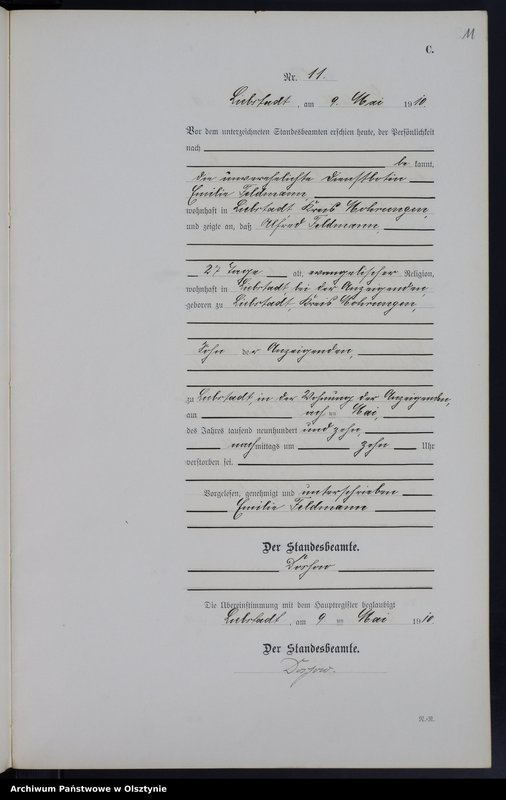 11
C.
Nr. 11.
Liebstadt, am 9. Mai 1910.
Vor dem unterzeichneten Standesbeamten erschien heute, der Persönlichkeit
nach
bekannt,
die unverehelichte Dienstbotin
Emilie Feldmann,
wohnhaft in Liebstadt Kreis Mohrungen,
und zeigte an, daß Alfred Feldmann,
27 Tage alt, evangelischer Religion,
wohnhaft in Liebstadt bei der Anzeigenden,
geboren zu Liebstadt, Kreis Mohrungen,
Sohn der Anzeigenden,
zu Liebstadt, in der Wohnung der Anzeigenden,
am acht Mai,
des Jahres tausend neunhundert und zehn,
nachmittags um zehn Uhr
verstorben sei.
Vorgelesen, genehmigt und unterschrieben
Emilie Feldmann
Der Standesbeamte.
Die Übereinstimmung mit dem Hauptregister beglaubigt
Liebstadt, am 9 ten Mai 1910.
Der Standesbeamte.
N.-R.
Archiwum Państwowe w Olsztynie